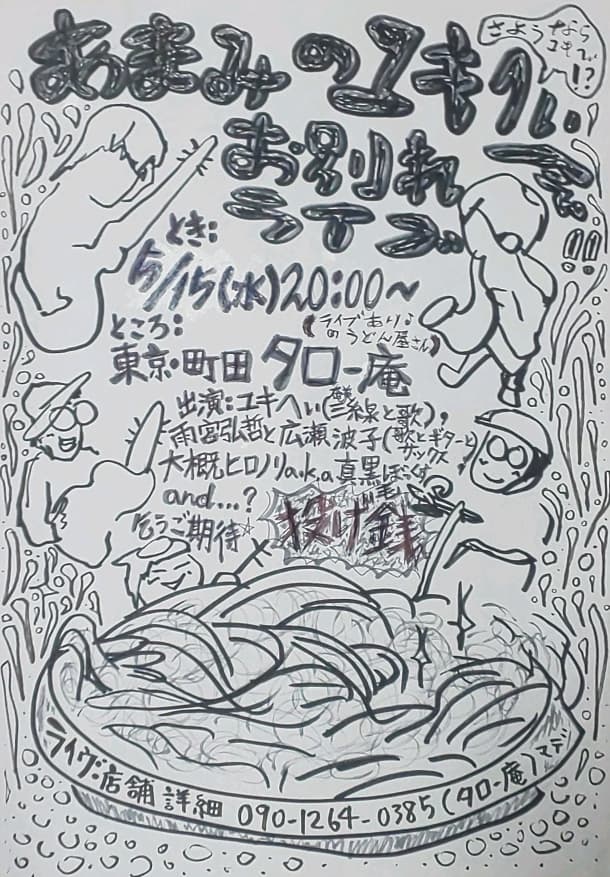 あまみのユキへい
さようなら
ユキへい
!?
お別れ
ライブ!!
とき:
5/15(水)20:00~
ところ:
(ライブありな
のうどん屋さん)
東京・町田 タロー庵
出演:ユキへい(三線と歌),
雨宮弘哲と広瀬波子(歌とギターと
サックス)
大概ヒロノリa.k.a真黒毛ぼっくす
and...?
乞うご期待☆
投げ銭
ライヴ・店舗詳細 090-1264-0385(タロー庵)マデ